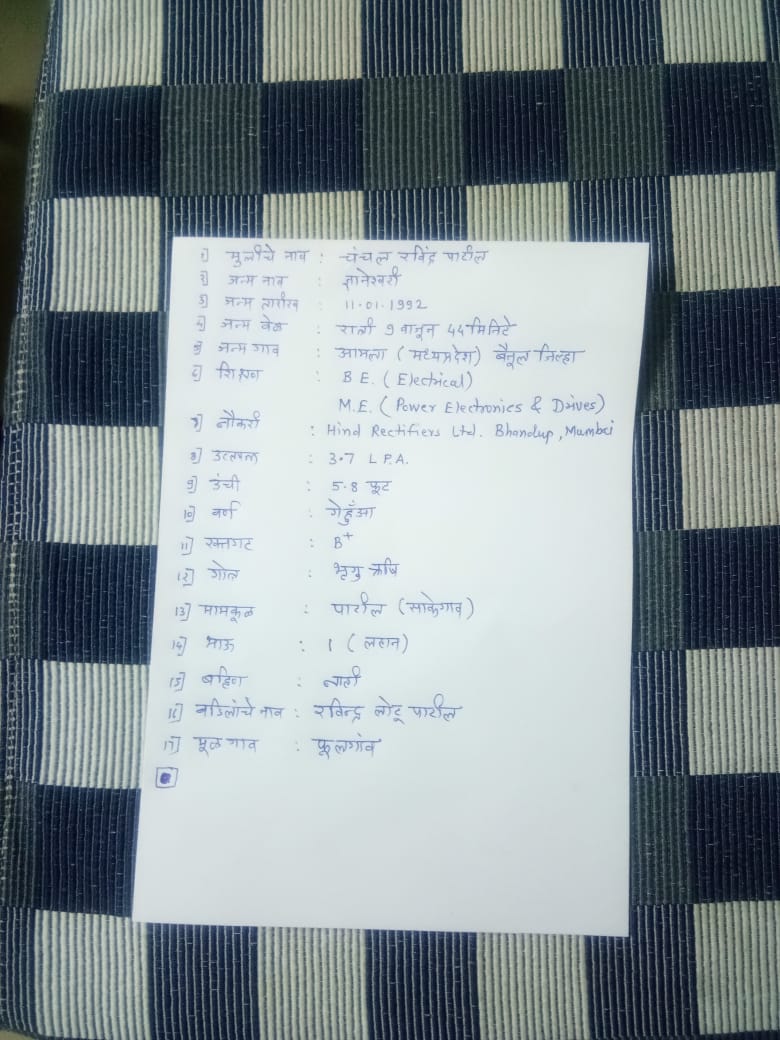 १] मुलीचे नाव : चंचल रविंद्र पाटील
२] जन्म नाव : ज्ञानेश्वरी
३] जन्म तारीख : 11.01.1992
४] जन्म वेळ : रात्री ९ वाजून ४४ मिनिटे
५] जन्म गाव : आमला (मध्यप्रदेश) बैतूल जिल्हा
६] शिक्षण : B.E. (Electrical)
M.E. (Power Electronics & Drives)
७] नौकरी : Hind Rectifiers Ltd. Bhandup, Mumbai
८] उत्पन्न : 3.7 L.P.A.
९] उंची : 5.8 फूट
१०] वर्ण : गेहुँआ
११] रक्तगट : B+
१२] गोत्र : भृगु ऋषि
१३] मामकूळ : पाटील (साकेगाव)
१४] भाऊ : 1 (लहान)
१५] बहिण : नाही
१६] वडिलांचे नाव : रविन्द्र लोटू पाटील
१७] मूळ गाव : फूलगांव